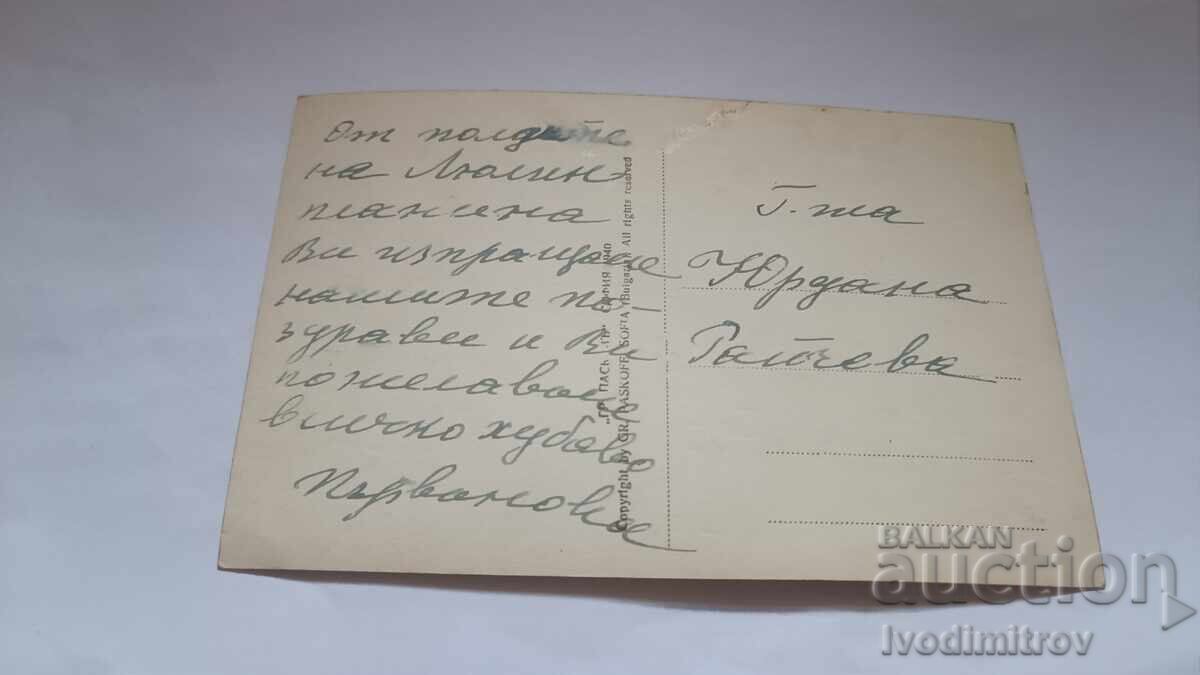 От полдите
на Люлин-
планина
Ви изпращаме
нашите по-
здрави и Ви
пожелаваме
всичко хубаво
Първанова
"ГР. ПАСКОВ" СОФИЯ 1940
Copyright by GR. PASKOFF SOFIA (Bulgaria) All rights reserved
Г-жа
Юрдана
Райчева
BALKAN
auction
Ivodimitrov